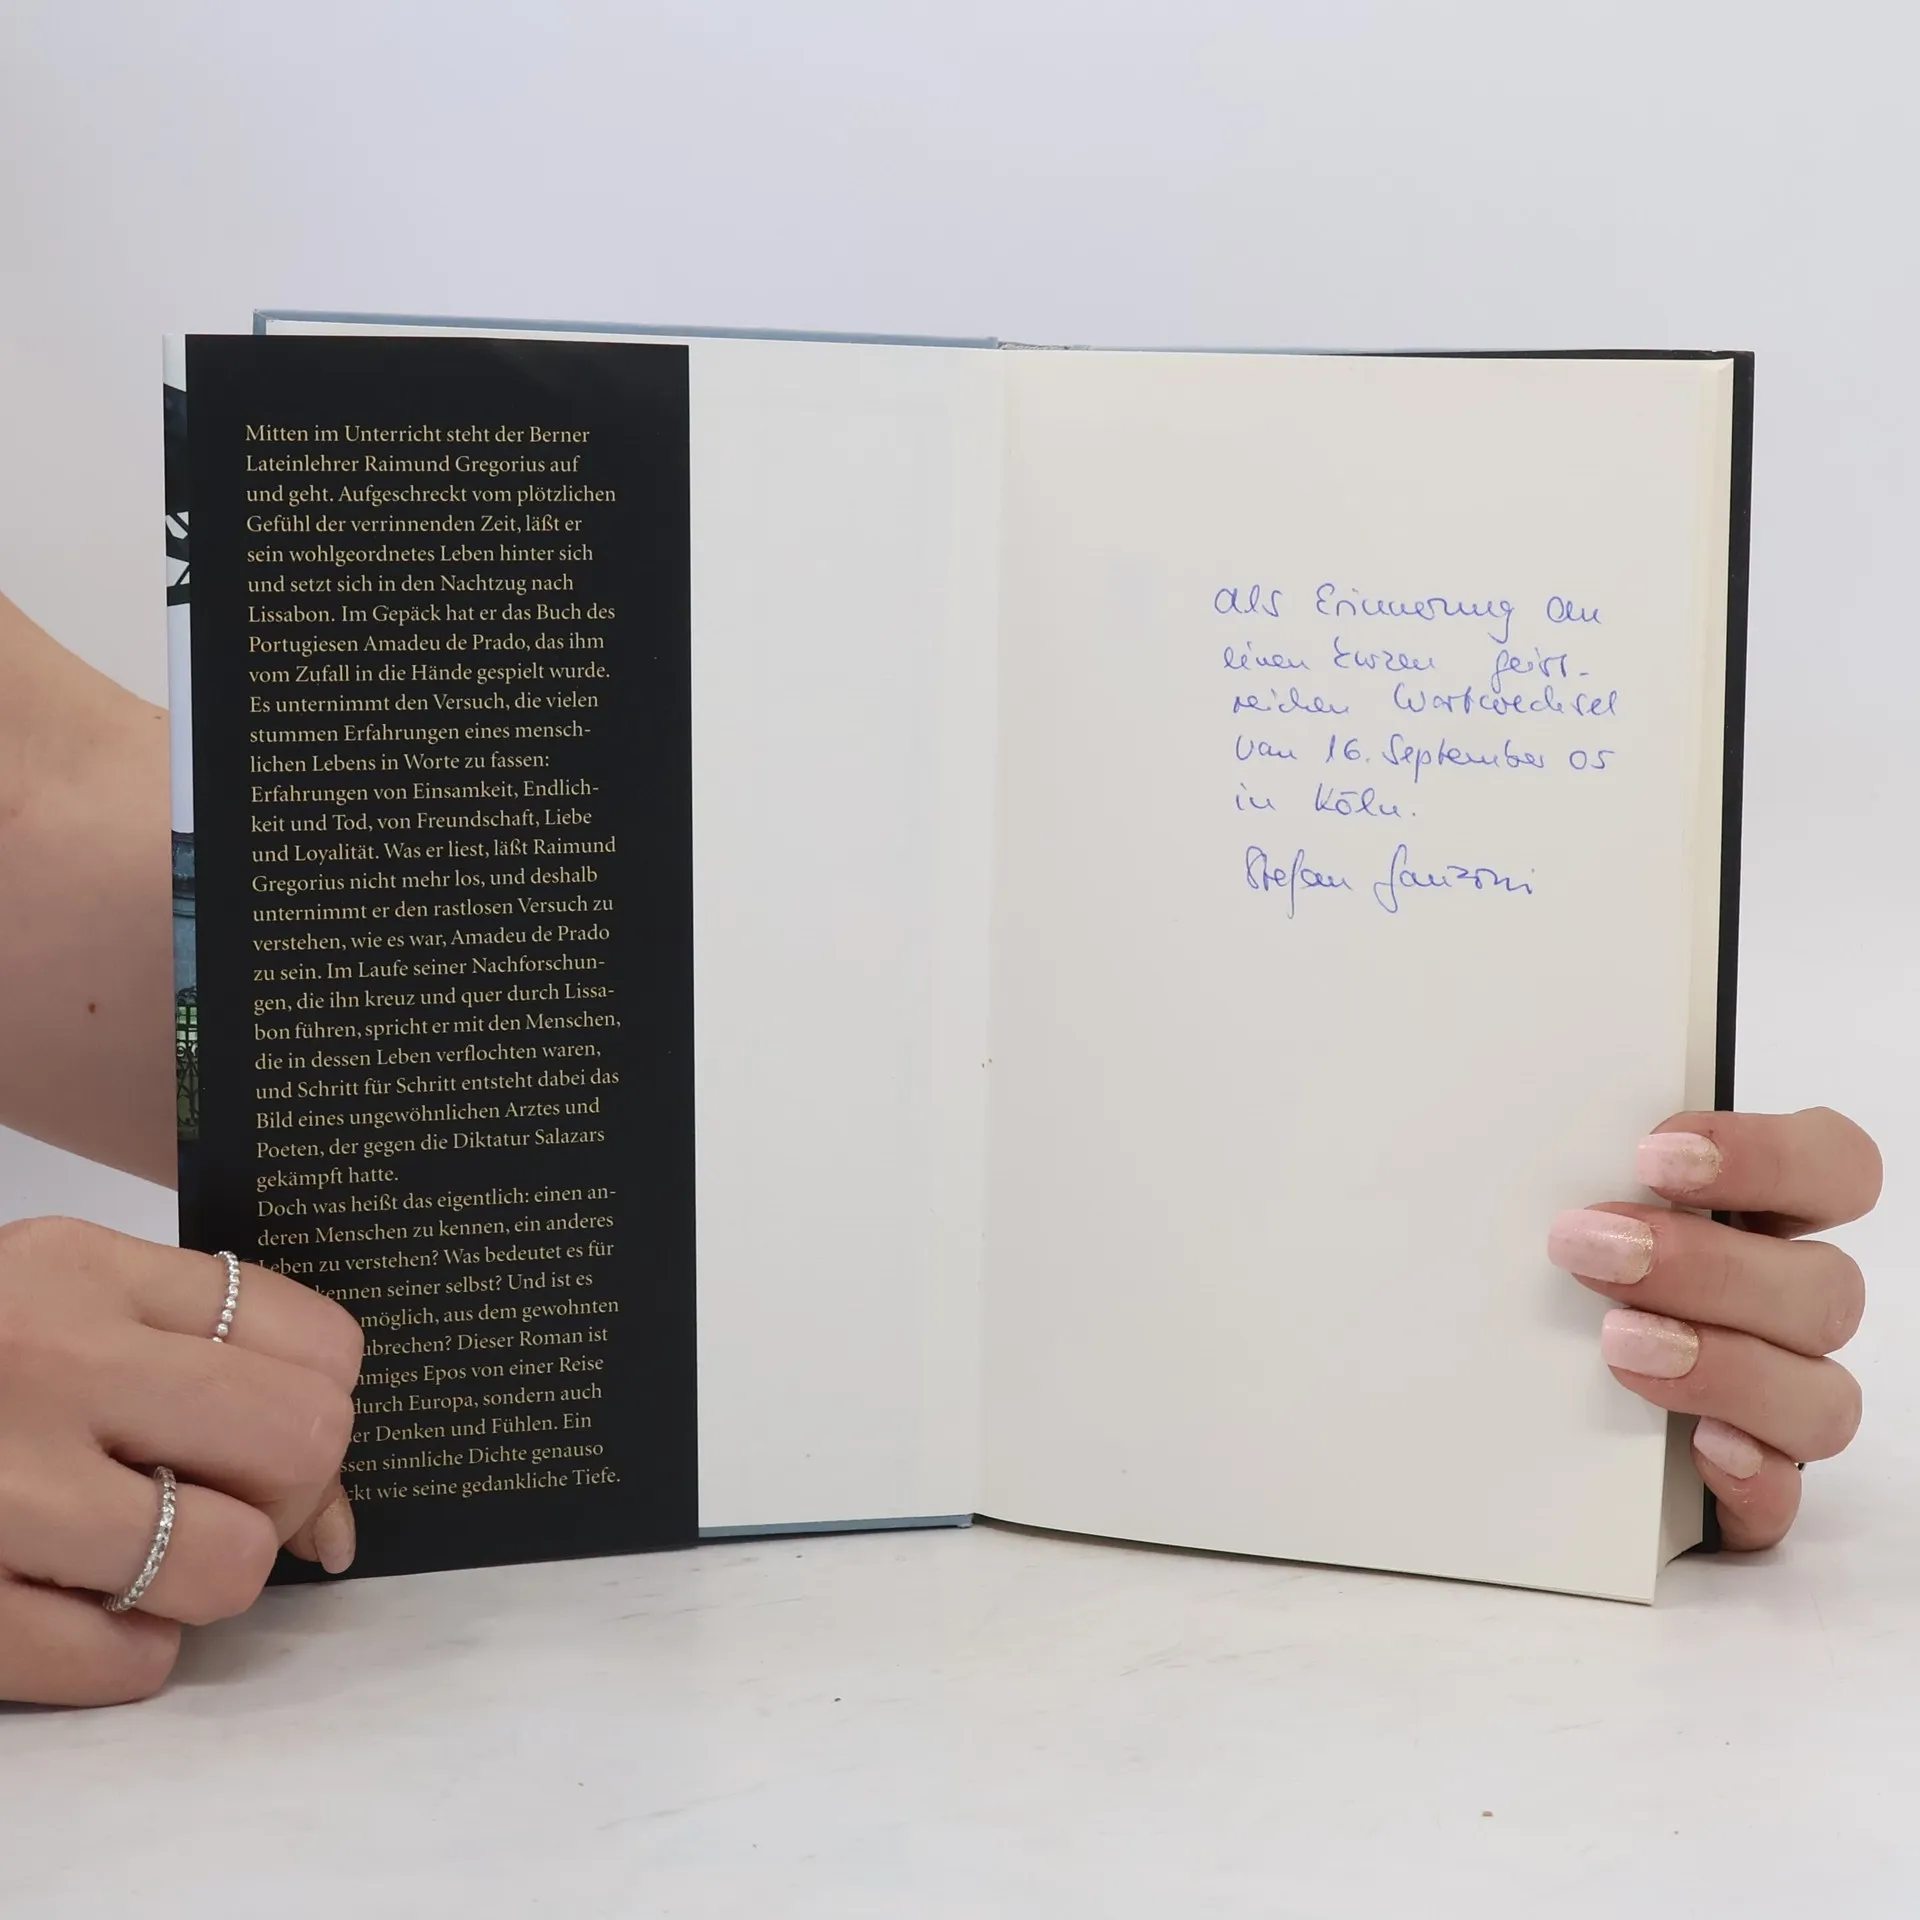 Mitten im Unterricht steht der Berner
Lateinlehrer Raimund Gregorius auf
und geht. Aufgeschreckt vom plötzlichen
Gefühl der verrinnenden Zeit, läßt er
sein wohlgeordnetes Leben hinter sich
und setzt sich in den Nachtzug nach
Lissabon. Im Gepäck hat er das Buch des
Portugiesen Amadeu de Prado, das ihm
vom Zufall in die Hände gespielt wurde.
Es unternimmt den Versuch, die vielen
stummen Erfahrungen eines mensch-
lichen Lebens in Worte zu fassen:
Erfahrungen von Einsamkeit, Endlich-
keit und Tod, von Freundschaft, Liebe
und Loyalität. Was er liest, läßt Raimund
Gregorius nicht mehr los, und deshalb
unternimmt er den rastlosen Versuch zu
verstehen, wie es war, Amadeu de Prado
zu sein. Im Laufe seiner Nachforschun-
gen, die ihn kreuz und quer durch Lissa-
bon führen, spricht er mit den Menschen,
die in dessen Leben verflochten waren,
und Schritt für Schritt entsteht dabei das
Bild eines ungewöhnlichen Arztes und
Poeten, der gegen die Diktatur Salazars
gekämpft hatte.
Doch was heißt das eigentlich: einen an-
deren Menschen zu kennen, ein anderes
Leben zu verstehen? Was bedeutet es für
seiner selbst? Und ist es
möglich, aus dem gewohnten
Dieser Roman ist
Epos von einer Reise
durch Europa, sondern auch
Denken und Fühlen. Ein
sinnliche Dichte genauso
wie seine gedankliche Tiefe.
als Erinnerung an
einen kurzen geist-
reichen Wortwechsel
vom 16. September 05
in Köln.
Stefan